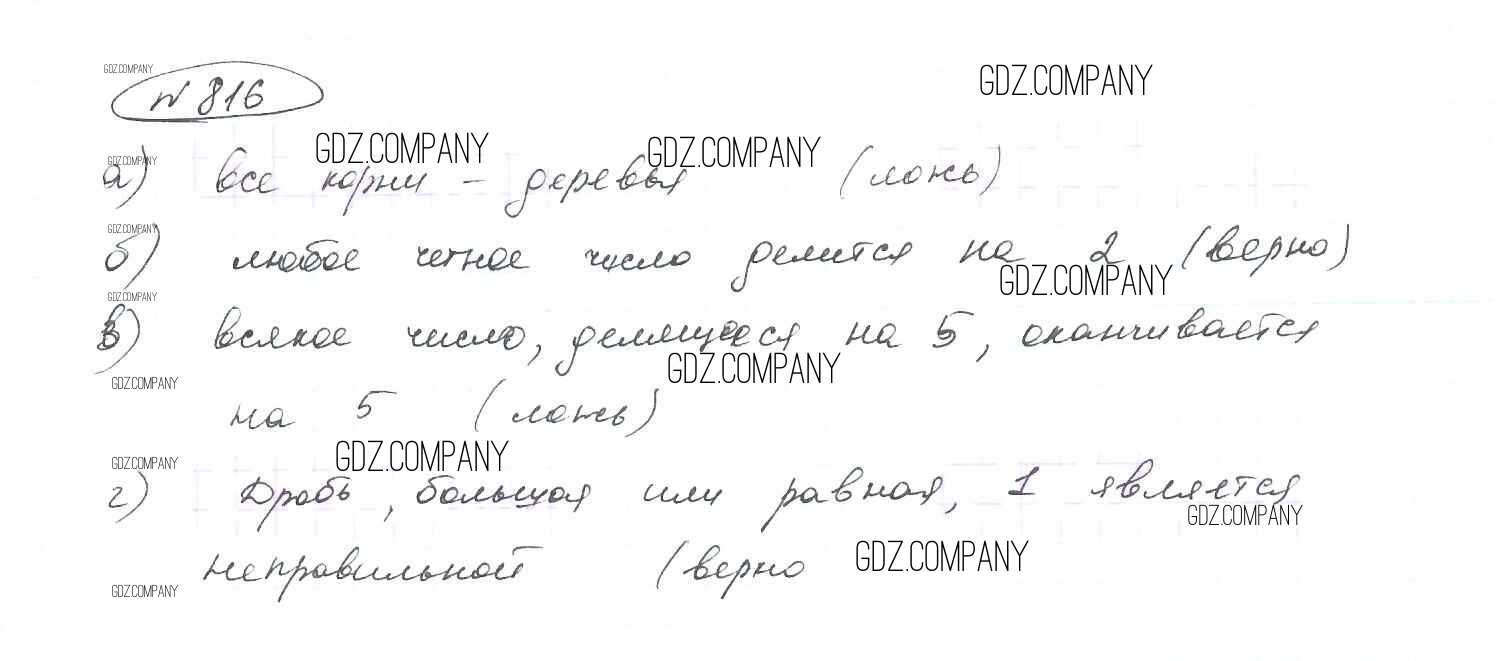 GDZ.COMPANY
N 816
GDZ.COMPANY
GDZ.COMPANY GDZ.COMPANY
GDZ.COMPANY
а) все корни – деревья (ложь)
GDZ.COMPANY
б) любое четное число делится на 2 (верно)
GDZ.COMPANY
GDZ.COMPANY
в) всякое число, делящееся на 5, оканчивается
GDZ.COMPANY
GDZ.COMPANY
на 5 (ложь)
GDZ.COMPANY
GDZ.COMPANY
г) Дробь, большая или равная, 1 является
GDZ.COMPANY
неправильной (верно
GDZ.COMPANY
GDZ.COMPANY